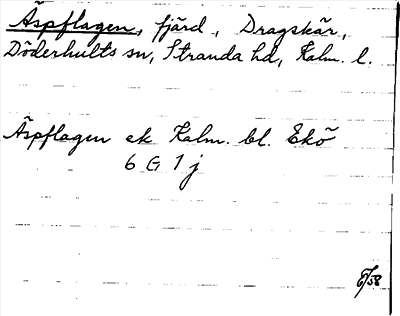 Äspflagen, fjärd, Dragskär,
Döderhults sn, Stranda hd, Kalm. l.
Äspflagen ek Kalm. bl. Ekö
6 G 1 j
6/58